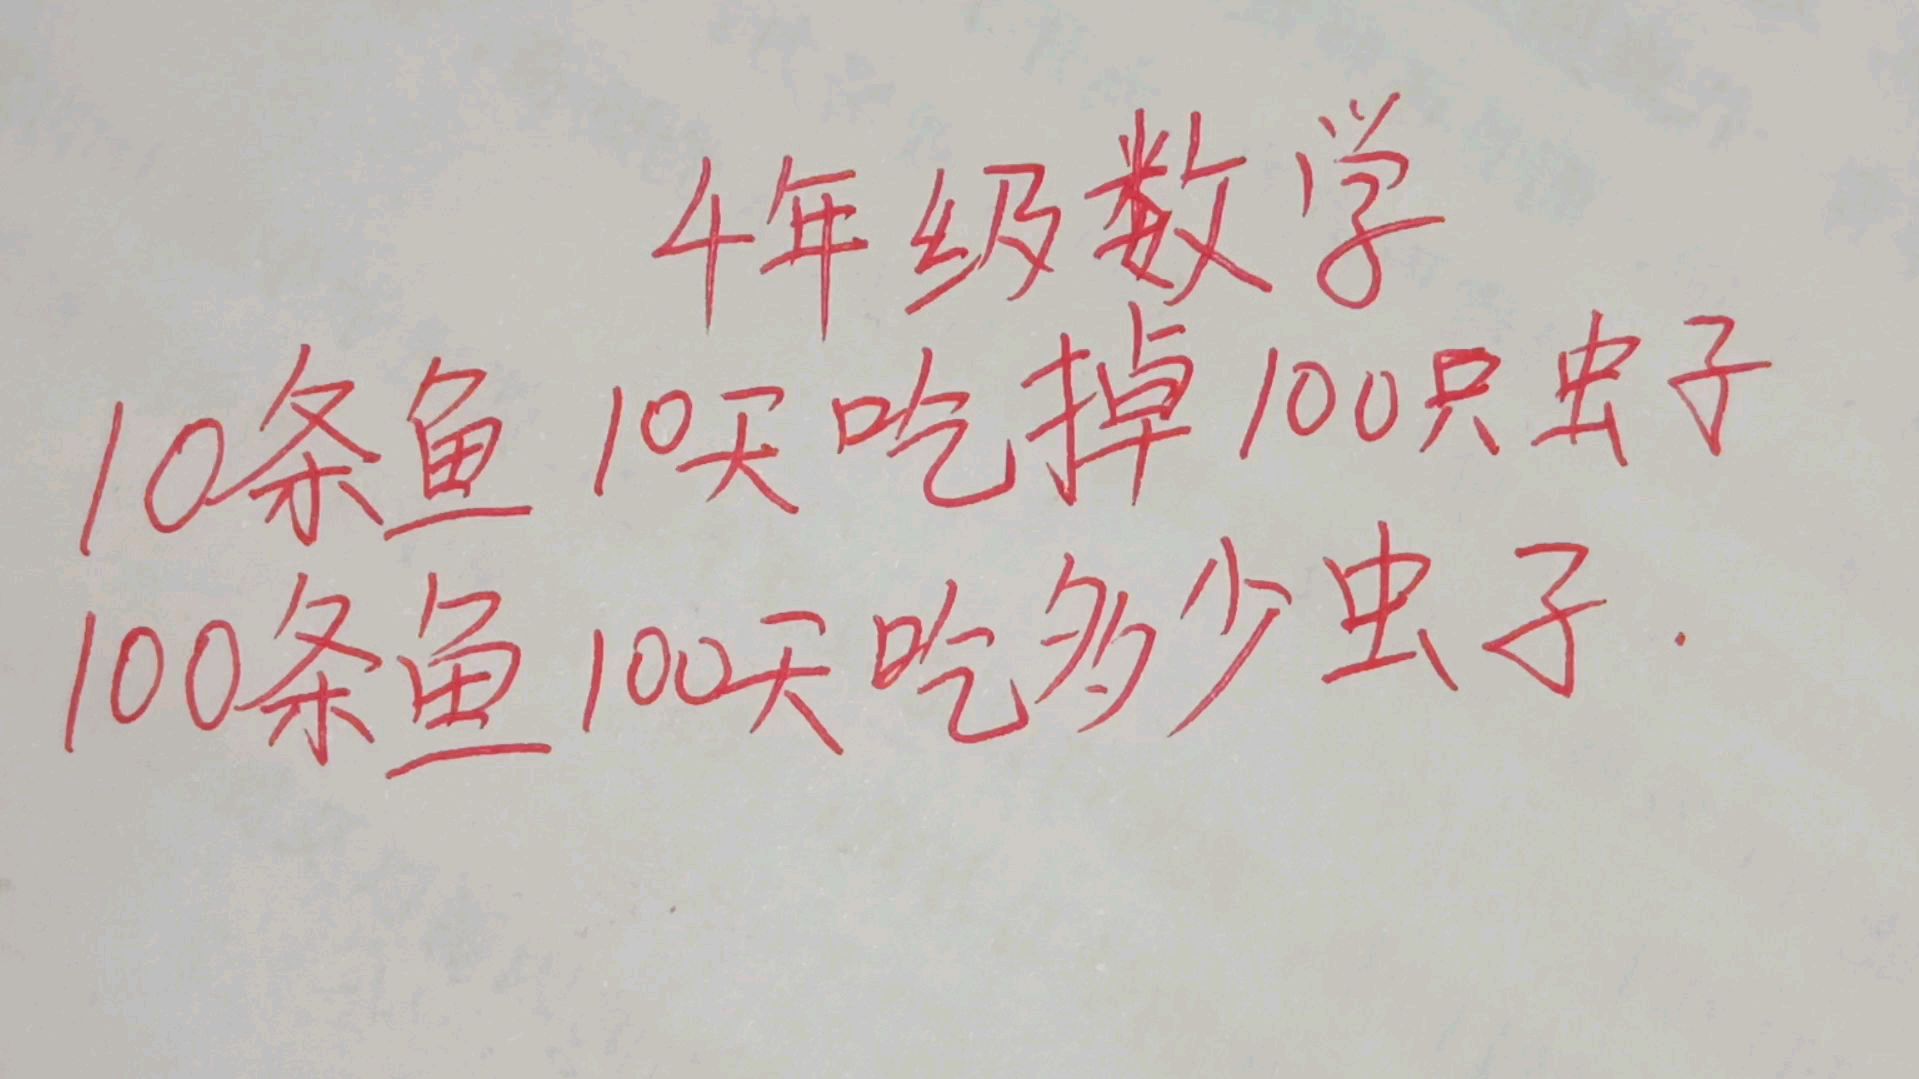 4年级数学
10条鱼 10天吃掉100只虫子
100条鱼100天吃多少虫子.